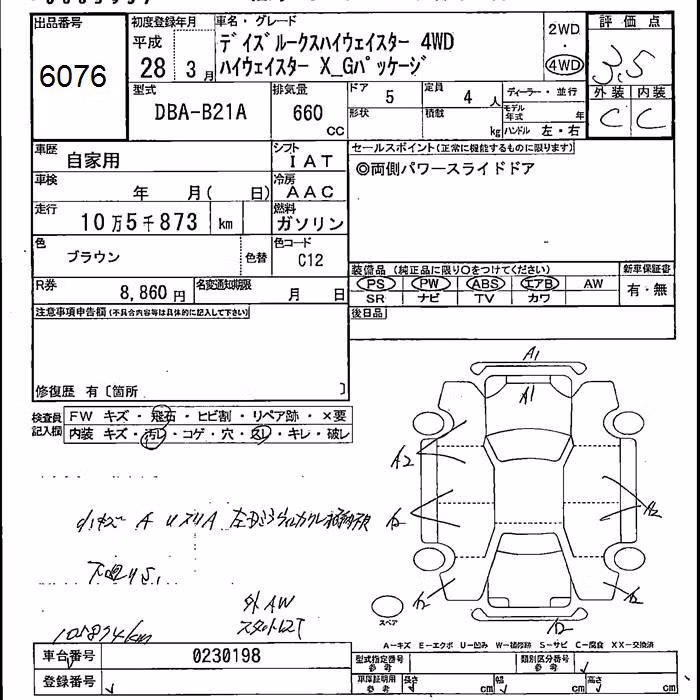 出品番号
6076
初度登録年月
平成
28 3月
車名・グレード
デイズルークスハイウェイスター 4WD
ハイウェイスター X_Gパッケージ
2WD
・
4WD
評価点
3.5
外装 内装
C C
型式
DBA-B21A
排気量
660
cc
ドア
5
定員
4
人
形状
積載
kg
ディーラー・並行
モデル
年式
年
ハンドル 左・右
車歴
自家用
シフト
IAT
車検
年 月( 日)
冷房
AAC
走行
10万5千873 km
燃料
ガソリン
色
ブラウン
色替
色コード
C12
R券
8,860 円
名変通知期限
月 日
セールスポイント(正常に機能するものに限ります)
◎両側パワースライドドア
装備品 (純正品に限り○をつけてください)
PS PW ABS エアB AW
SR ナビ TV カワ
新車保証書
有・無
後日品
注意事項申告欄(不具合内容等は具体的に記入して下さい)
修復歴 有〔箇所 〕
検査員
記入欄
FW キズ・飛石・ヒビ割・リペア跡・×要
内装 キズ・汚レ・コゲ・穴・スレ・キレ・破レ
A1
A1
A2
A2
A2
A2
A2
A2
小キズ A
下廻りS,
外AW
105874km
スペア
A-キズ E-エクボ U-凹み W-補修跡 S-サビ C-腐食 XX-交換済
車台番号
0230198
登録番号
型式指定番号
参考
類別区分番号
参考
車庫証明用
参考
長さ
cm
幅
cm
高さ
cm